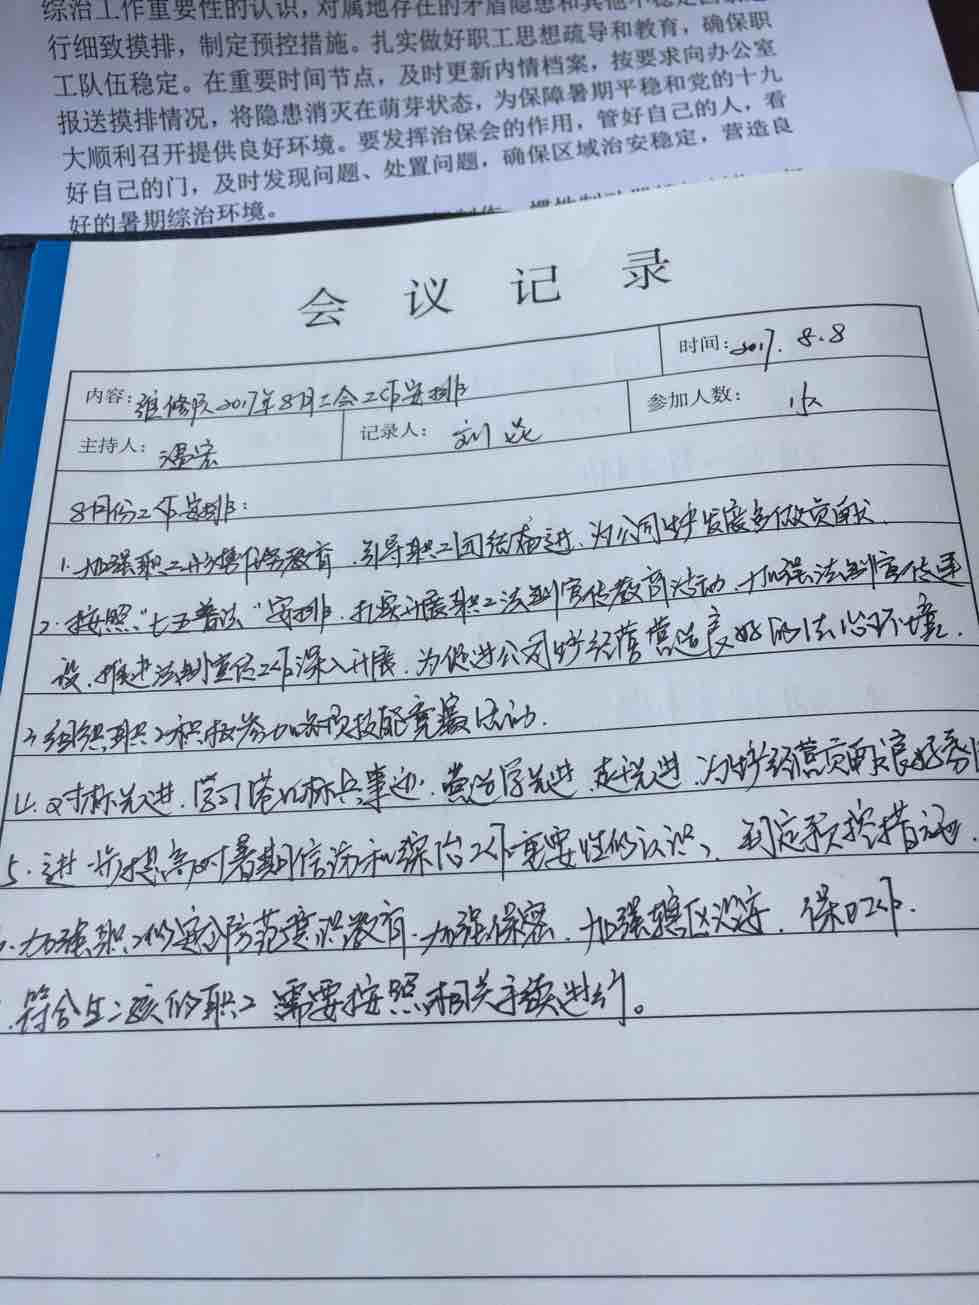 综治工作重要性的认识，对属地存在的矛盾隐患和其他不稳定因素进
行细致摸排，制定预控措施。扎实做好职工思想疏导和教育，确保职
工队伍稳定。在重要时间节点，及时更新内情档案，按要求向办公室
报送摸排情况，将隐患消灭在萌芽状态，为保障暑期平稳和党的十九
大顺利召开提供良好环境。要发挥治保会的作用，管好自己的人，看
好自己的门，及时发现问题、处置问题，确保区域治安稳定，营造良
好的暑期综治环境。
会议记录
时间：2017.8.8
内容：维修队2017年8月工会工作安排
主持人： 记录人：刘 参加人数：
8月份工作安排：
1.加强职工形势任务教育，引导职工团结奋进，为公司生产发展多做贡献。
2.按照“七五普法”安排，扎实开展职工法制宣传教育活动，加强法制宣传建
设，推进法制宣传工作深入开展，为促进公司生产经营营造良好的法治环境。
3.组织职工积极参加各项技能竞赛活动。
4.对标先进，学习标兵事迹，营造学先进、赶先进，为生产经营贡献良好
5.进一步提高对暑期信访和综治工作重要性的认识，制定预控措施。
加强职工的安全防范意识教育，加强保密，加强辖区，保卫工作。
符合生二孩的职工需要按照相关手续进行。